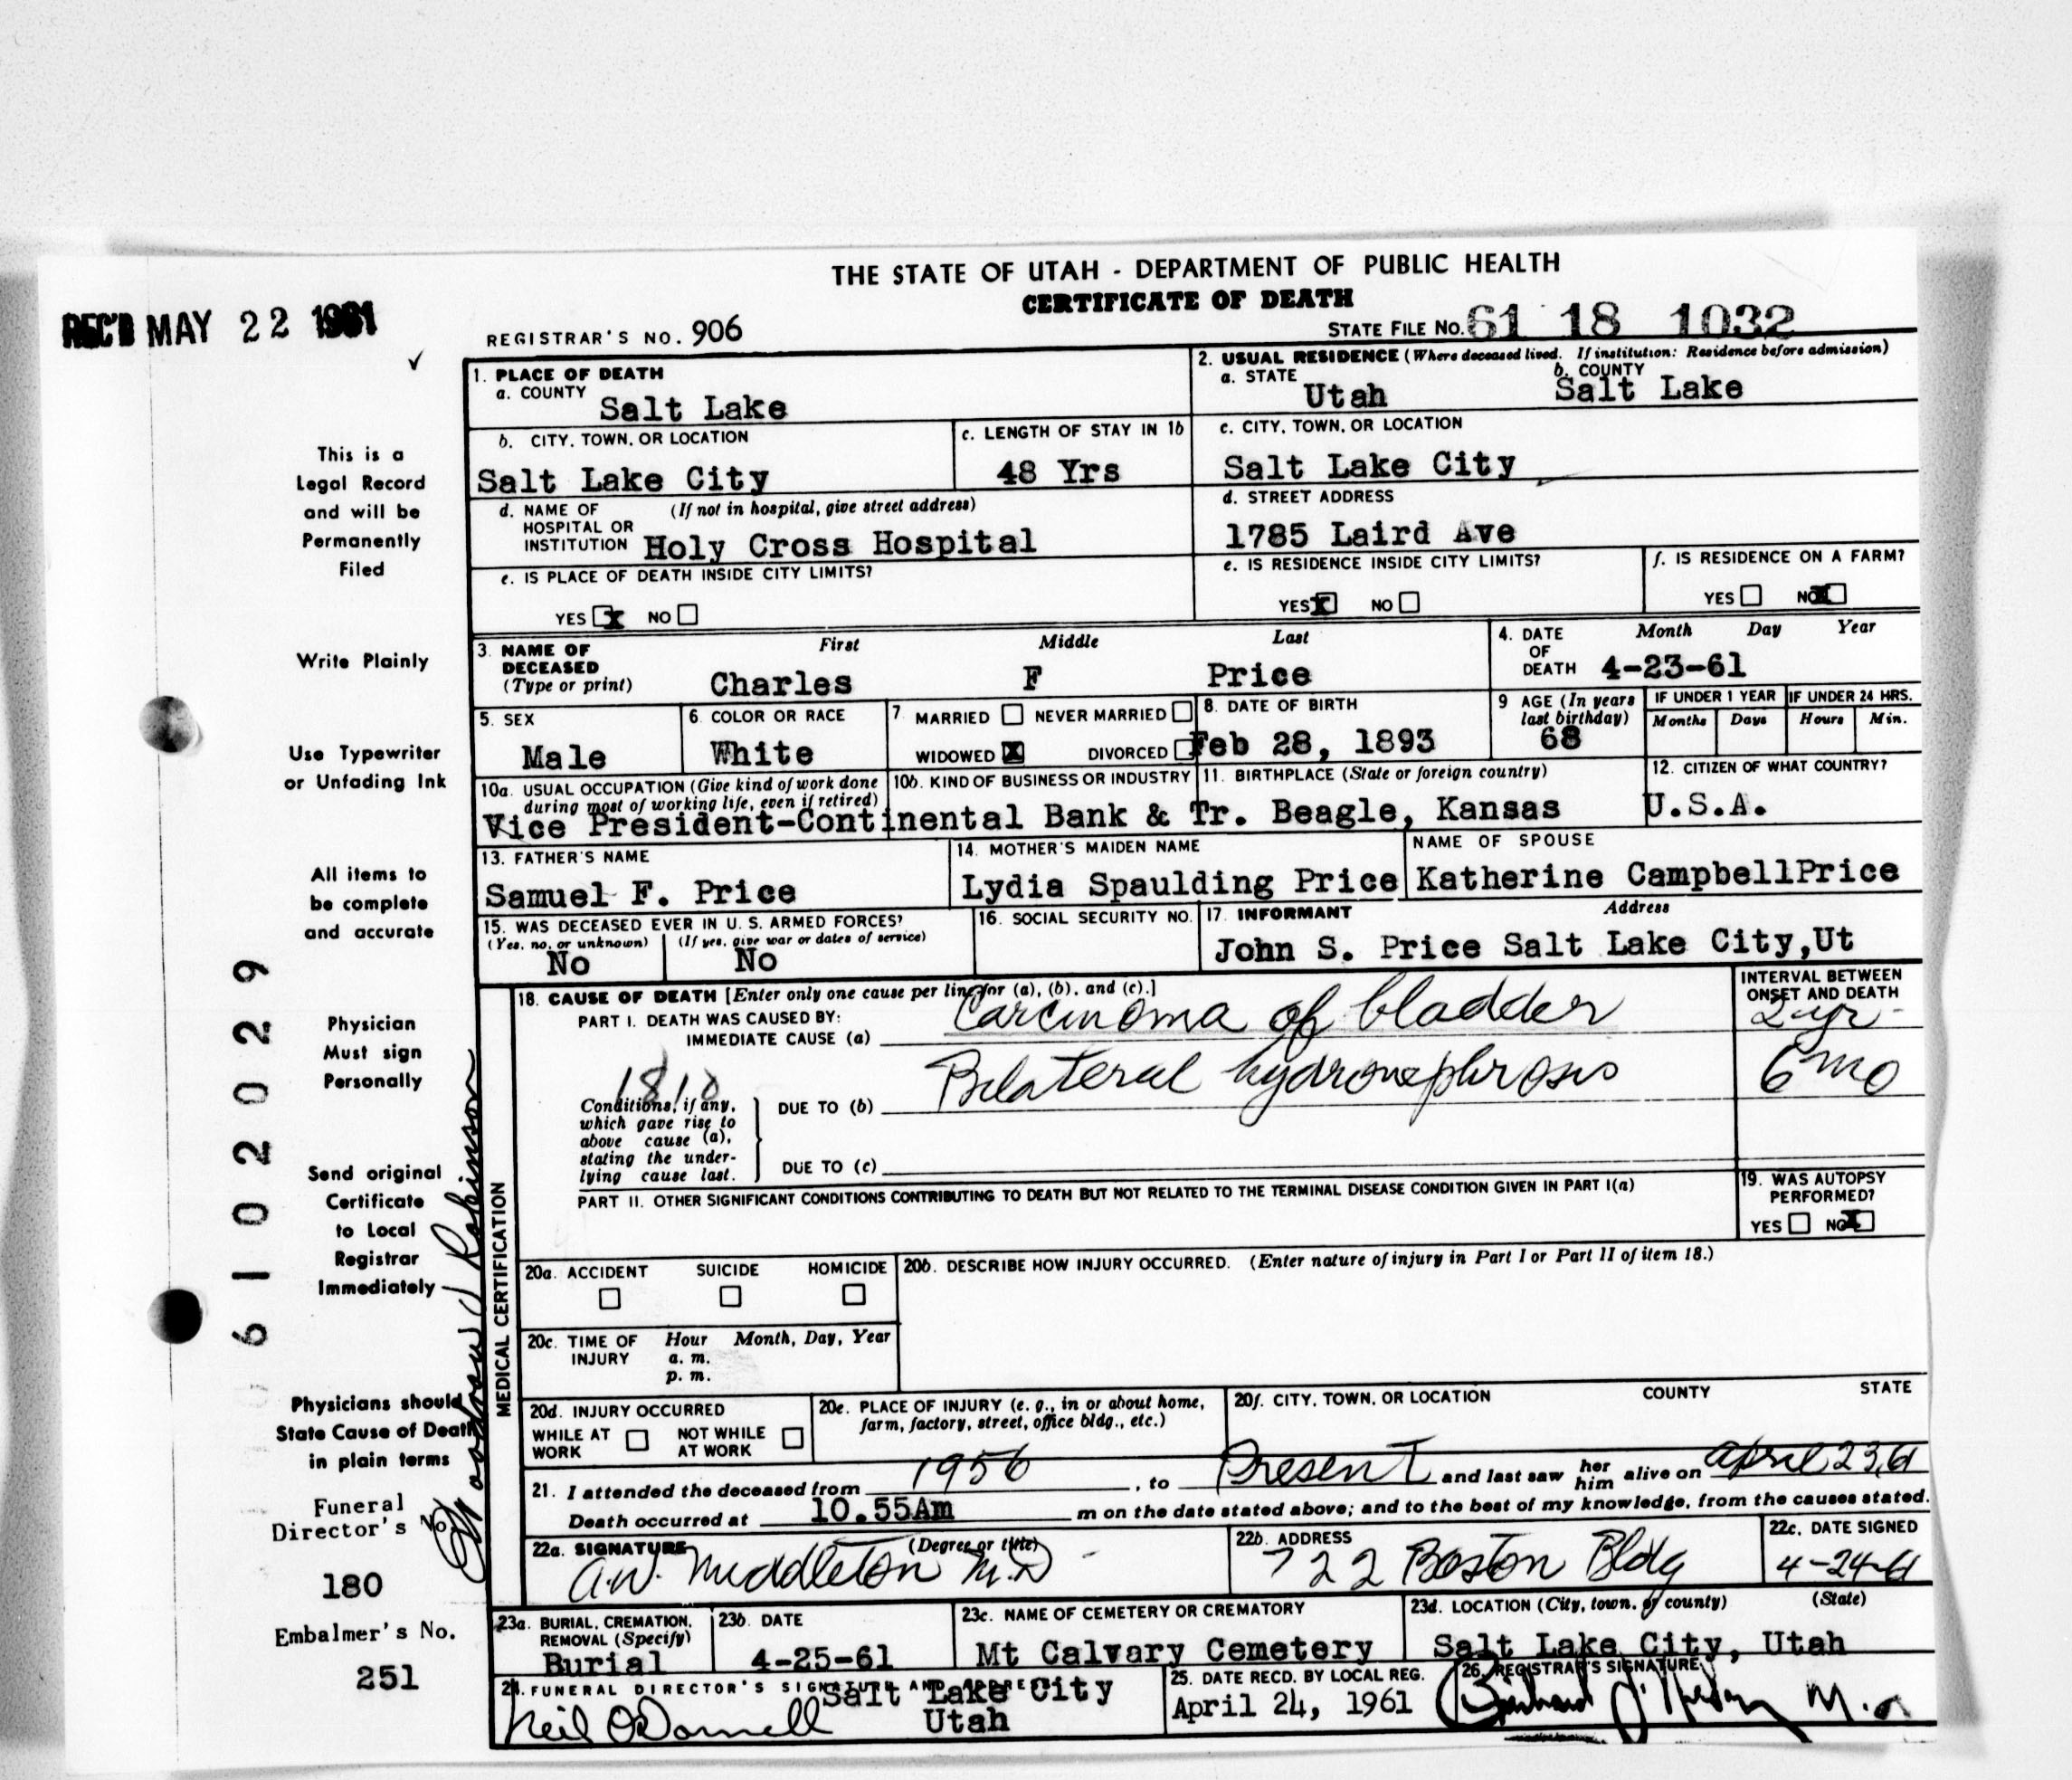 THE STATE OF UTAH - DEPARTMENT OF PUBLIC HEALTH
CERTIFICATE OF DEATH
REC'D MAY 22 1961
REGISTRAR'S NO. 906
STATE FILE NO. 61 18 1032
1. PLACE OF DEATH
a. COUNTY Salt Lake
2. USUAL RESIDENCE (Where deceased lived. If institution: Residence before admission)
a. STATE Utah b. COUNTY Salt Lake
b. CITY, TOWN, OR LOCATION Salt Lake City
c. LENGTH OF STAY IN 1b 48 Yrs
c. CITY, TOWN, OR LOCATION Salt Lake City
d. NAME OF HOSPITAL OR INSTITUTION (If not in hospital, give street address) Holy Cross Hospital
d. STREET ADDRESS 1785 Laird Ave
e. IS PLACE OF DEATH INSIDE CITY LIMITS?
YES X NO
e. IS RESIDENCE INSIDE CITY LIMITS?
YES X NO
f. IS RESIDENCE ON A FARM?
YES NO X
3. NAME OF DECEASED (Type or print)
First Middle Last
Charles F Price
4. DATE OF DEATH Month Day Year
4-23-61
5. SEX Male
6. COLOR OR RACE White
7 MARRIED NEVER MARRIED
WIDOWED X DIVORCED
8. DATE OF BIRTH Feb 28, 1893
9 AGE (In years last birthday) 68
IF UNDER 1 YEAR Months Days
IF UNDER 24 HRS. Hours Min.
10a. USUAL OCCUPATION (Give kind of work done during most of working life, even if retired)
10b. KIND OF BUSINESS OR INDUSTRY
11. BIRTHPLACE (State or foreign country)
12. CITIZEN OF WHAT COUNTRY?
Vice President-Continental Bank & Tr. Beagle, Kansas U.S.A.
13. FATHER'S NAME Samuel F. Price
14. MOTHER'S MAIDEN NAME Lydia Spaulding Price
NAME OF SPOUSE Katherine CampbellPrice
15. WAS DECEASED EVER IN U. S. ARMED FORCES?
(Yes, no, or unknown) No
(If yes, give war or dates of service) No
16. SOCIAL SECURITY NO.
17. INFORMANT Address
John S. Price Salt Lake City,Ut
MEDICAL CERTIFICATION
18. CAUSE OF DEATH [Enter only one cause per line for (a), (b), and (c).]
INTERVAL BETWEEN ONSET AND DEATH
PART I. DEATH WAS CAUSED BY:
IMMEDIATE CAUSE (a) Carcinoma of bladder 2 yr
1810
Conditions, if any, which gave rise to above cause (a), stating the underlying cause last.
DUE TO (b) Bilateral hydronephrosis 6 mo
DUE TO (c)
PART II. OTHER SIGNIFICANT CONDITIONS CONTRIBUTING TO DEATH BUT NOT RELATED TO THE TERMINAL DISEASE CONDITION GIVEN IN PART I(a)
19. WAS AUTOPSY PERFORMED?
YES NO X
20a. ACCIDENT SUICIDE HOMICIDE
20b. DESCRIBE HOW INJURY OCCURRED. (Enter nature of injury in Part I or Part II of item 18.)
20c. TIME OF INJURY Hour Month, Day, Year
a. m.
p. m.
20d. INJURY OCCURRED
WHILE AT WORK NOT WHILE AT WORK
20e. PLACE OF INJURY (e. g., in or about home, farm, factory, street, office bldg., etc.)
20f. CITY, TOWN, OR LOCATION COUNTY STATE
21. I attended the deceased from 1956, to Present and last saw her him alive on April 23,61
Death occurred at 10.55Am m on the date stated above; and to the best of my knowledge, from the causes stated.
22a. SIGNATURE (Degree or title)
A.W. Middleton M.D
22b. ADDRESS 722 Boston Bldg
22c. DATE SIGNED 4-24-61
23a. BURIAL, CREMATION, REMOVAL (Specify) Burial
23b. DATE 4-25-61
23c. NAME OF CEMETERY OR CREMATORY Mt Calvary Cemetery
23d. LOCATION (City, town, or county) (State)
Salt Lake City, Utah
24. FUNERAL DIRECTOR'S SIGNATURE AND ADDRESS
Neil O'Donnell Salt Lake City
Utah
25. DATE RECD. BY LOCAL REG. April 24, 1961
26. REGISTRAR'S SIGNATURE
M.D
This is a
Legal Record
and will be
Permanently
Filed
Write Plainly
Use Typewriter
or Unfading Ink
All items to
be complete
and accurate
Physician
Must sign
Personally
Send original
Certificate
to Local
Registrar
Immediately
Physicians should
State Cause of Death
in plain terms
Funeral
Director's No
180
Embalmer's No.
251
6102029
Robinson